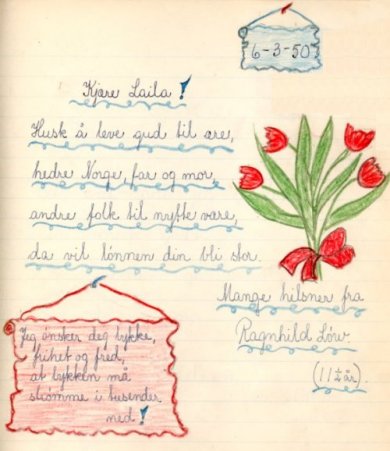 6-3-50
Kjære Laila!
Husk å leve gud til ære,
hedre Norge, far og mor,
andre folk til nytte være,
da vil lönnen din bli stor.
Mange hilsner fra
Ragnhild Löw
(11½ år).
Jeg önsker deg lykke,
frihet og fred,
at lykken må
strömme i tusender
ned!